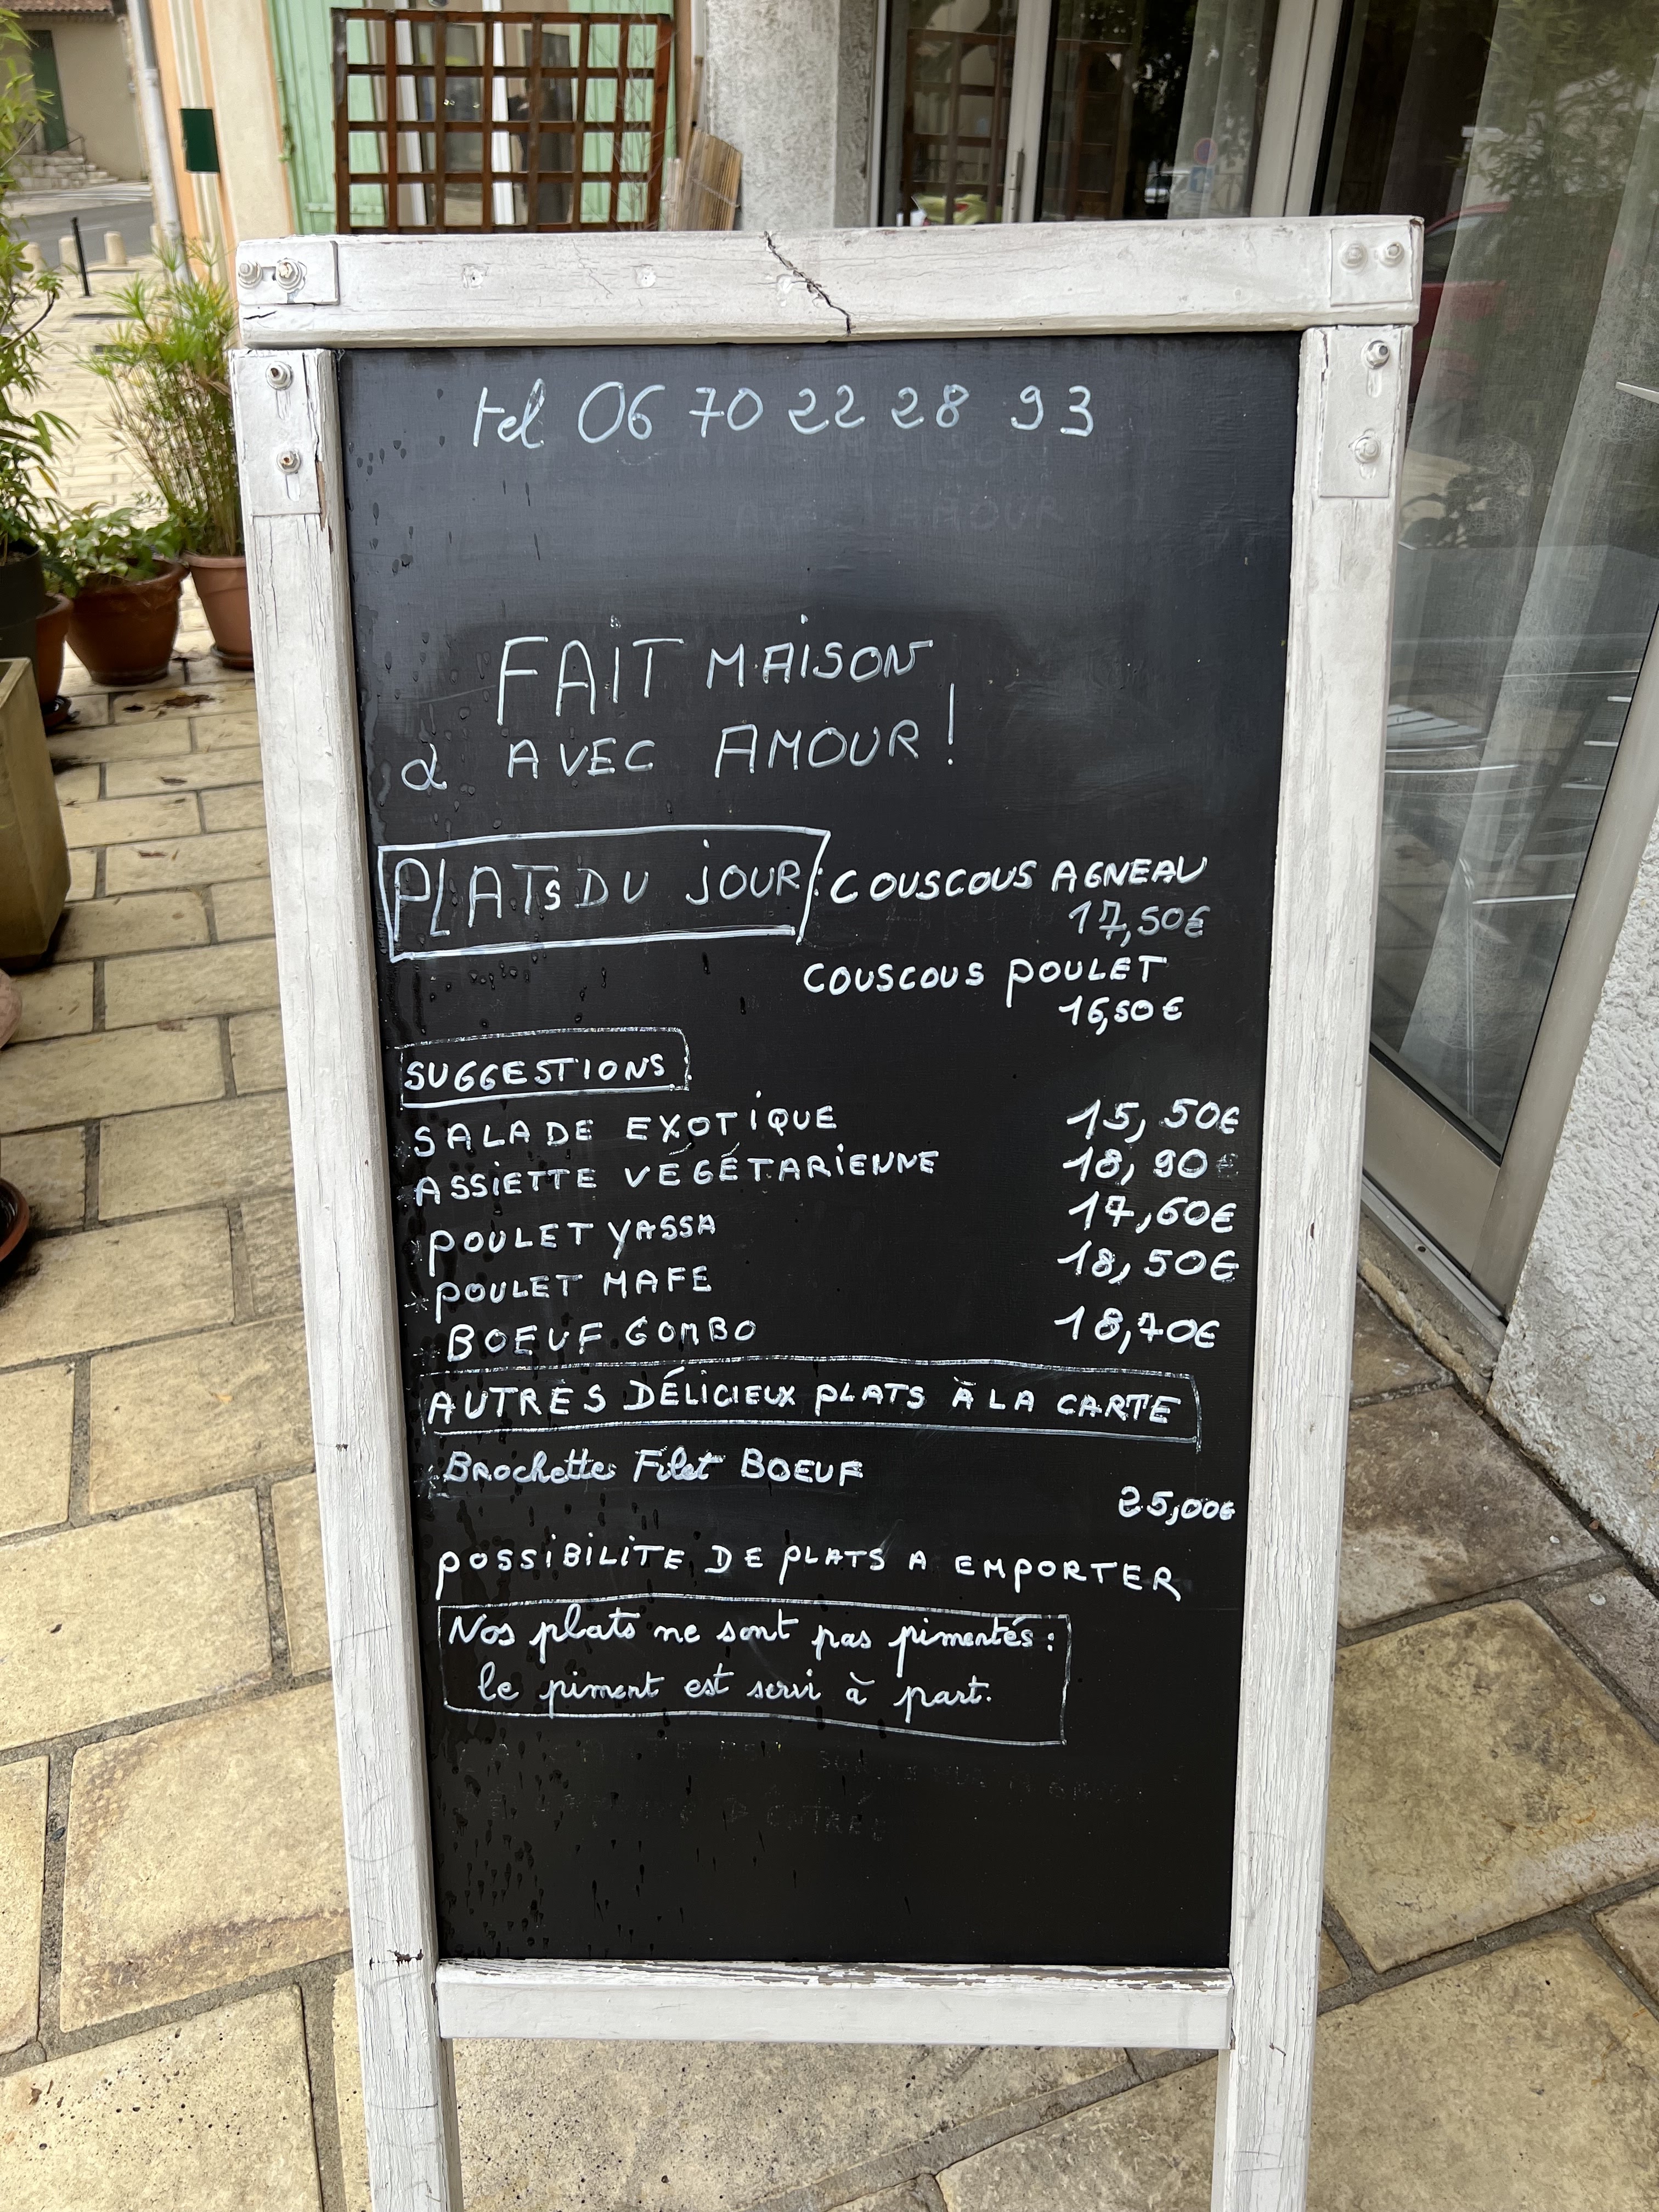 tel 06 70 22 28 93
FAIT MAISON
& AVEC AMOUR !
PLATS DU JOUR : COUSCOUS AGNEAU
17,50€
COUSCOUS POULET
16,50€
SUGGESTIONS
SALADE EXOTIQUE 15,50€
ASSIETTE VÉGÉTARIENNE 18,90€
POULET YASSA 17,60€
POULET MAFE 18,50€
BOEUF GOMBO 18,70€
AUTRES DÉLICIEUX PLATS À LA CARTE
Brochette Filet BOEUF
25,00€
POSSIBILITE DE PLATS A EMPORTER
Nos plats ne sont pas pimentés :
le piment est servi à part.